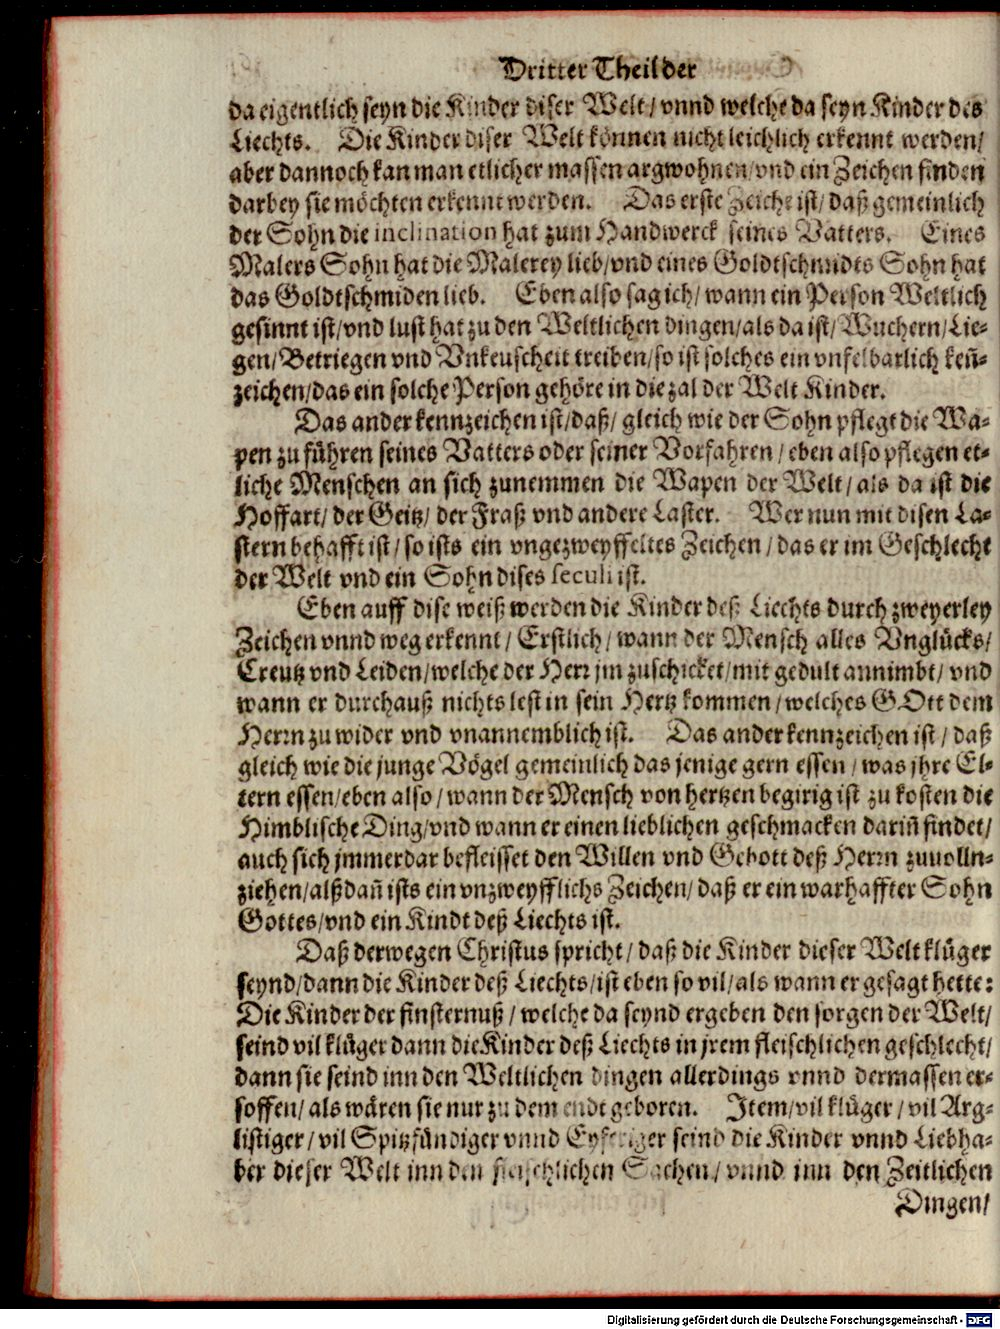 Dritter Theil der
da eigentlich seyn die Kinder diser Welt/ vnnd welche da seyn Kinder des
Liechts. Die Kinder diser Welt können nicht leichlich erkennt werden/
aber dannoch kan man etlicher massen argwohnen/vnd ein Zeichen finden
darbey sie möchten erkennt werden. Das erste Zeiche ist/ daß gemeinlich
der Sohn die inclination hat zum Handwerck seines Vatters. Eines
Malers Sohn hat die Malerey lieb/vnd eines Goldtschmidts Sohn hat
das Goldtschmiden lieb. Eben also sag ich/ wann ein Person Weltlich
gesinnt ist/vnd lust hat zu den Weltlichen dingen/als da ist/ Wuchern/Lie-
gen/Betriegen vnd Vnkeuscheit treiben/so ist solches ein vnfelbarlich keñ-
zeichen/das ein solche Person gehöre in die zal der Welt Kinder.
Das ander kennzeichen ist/daß/ gleich wie der Sohn pflegt die Wa-
pen zu führen seines Vatters oder seiner Vorfahren/ eben also pflegen et-
liche Menschen an sich zunemmen die Wapen der Welt/ als da ist die
Hoffart/ der Geitz/ der Fraß vnd andere Laster. Wer nun mit disen La-
stern behafft ist/ so ists ein vngezweyffeltes Zeichen/ das er im Geschlecht
der Welt vnd ein Sohn dises seculi ist.
Eben auff dise weiß werden die Kinder deß Liechts durch zweyerley
Zeichen vnnd weg erkennt/ Erstlich/ wann der Mensch alles Vnglücks/
Creutz vnd Leiden/welche der Herr jm zuschicket/mit gedult annimbt/ vnd
wann er durchauß nichts lest in sein Hertz kommen/welches GOtt dem
Herrn zu wider vnd vnannemblich ist. Das ander kennzeichen ist/ daß
gleich wie die junge Vögel gemeinlich das jenige gern essen/ was jhre El-
tern essen/eben also/ wann der Mensch von hertzen begirig ist zu kosten die
Himblische Ding/vnd wann er einen lieblichen geschmacken dariñ findet/
auch sich jmmerdar befleisset den Willen vnd Gebott deß Herrn zuuolln-
ziehen/alßdañ ists ein vnzweyfflichs Zeichen/ daß er ein warhaffter Sohn
Gottes/vnd ein Kindt deß Liechts ist.
Daß derwegen Christus spricht/ daß die Kinder dieser Welt klüger
seynd/dann die Kinder deß Liechts/ist eben so vil/als wann er gesagt hette:
Die Kinder der finsternuß/ welche da seynd ergeben den sorgen der Welt/
seind vil klüger dann die Kinder deß Liechts in jrem fleischlichen geschlecht/
dann sie seind inn den Weltlichen dingen allerdings vnnd dermassen er-
soffen/ als wären sie nur zu dem endt geboren. Item/vil klüger/ vil Arg-
listiger/ vil Spitzfündiger vnnd Eyferiger seind die Kinder vnnd Liebha-
ber dieser Welt inn den fleischlichen Sachen/ vnnd inn den Zeitlichen
Dingen/
Digitalisierung gefördert durch die Deutsche Forschungsgemeinschaft - DFG